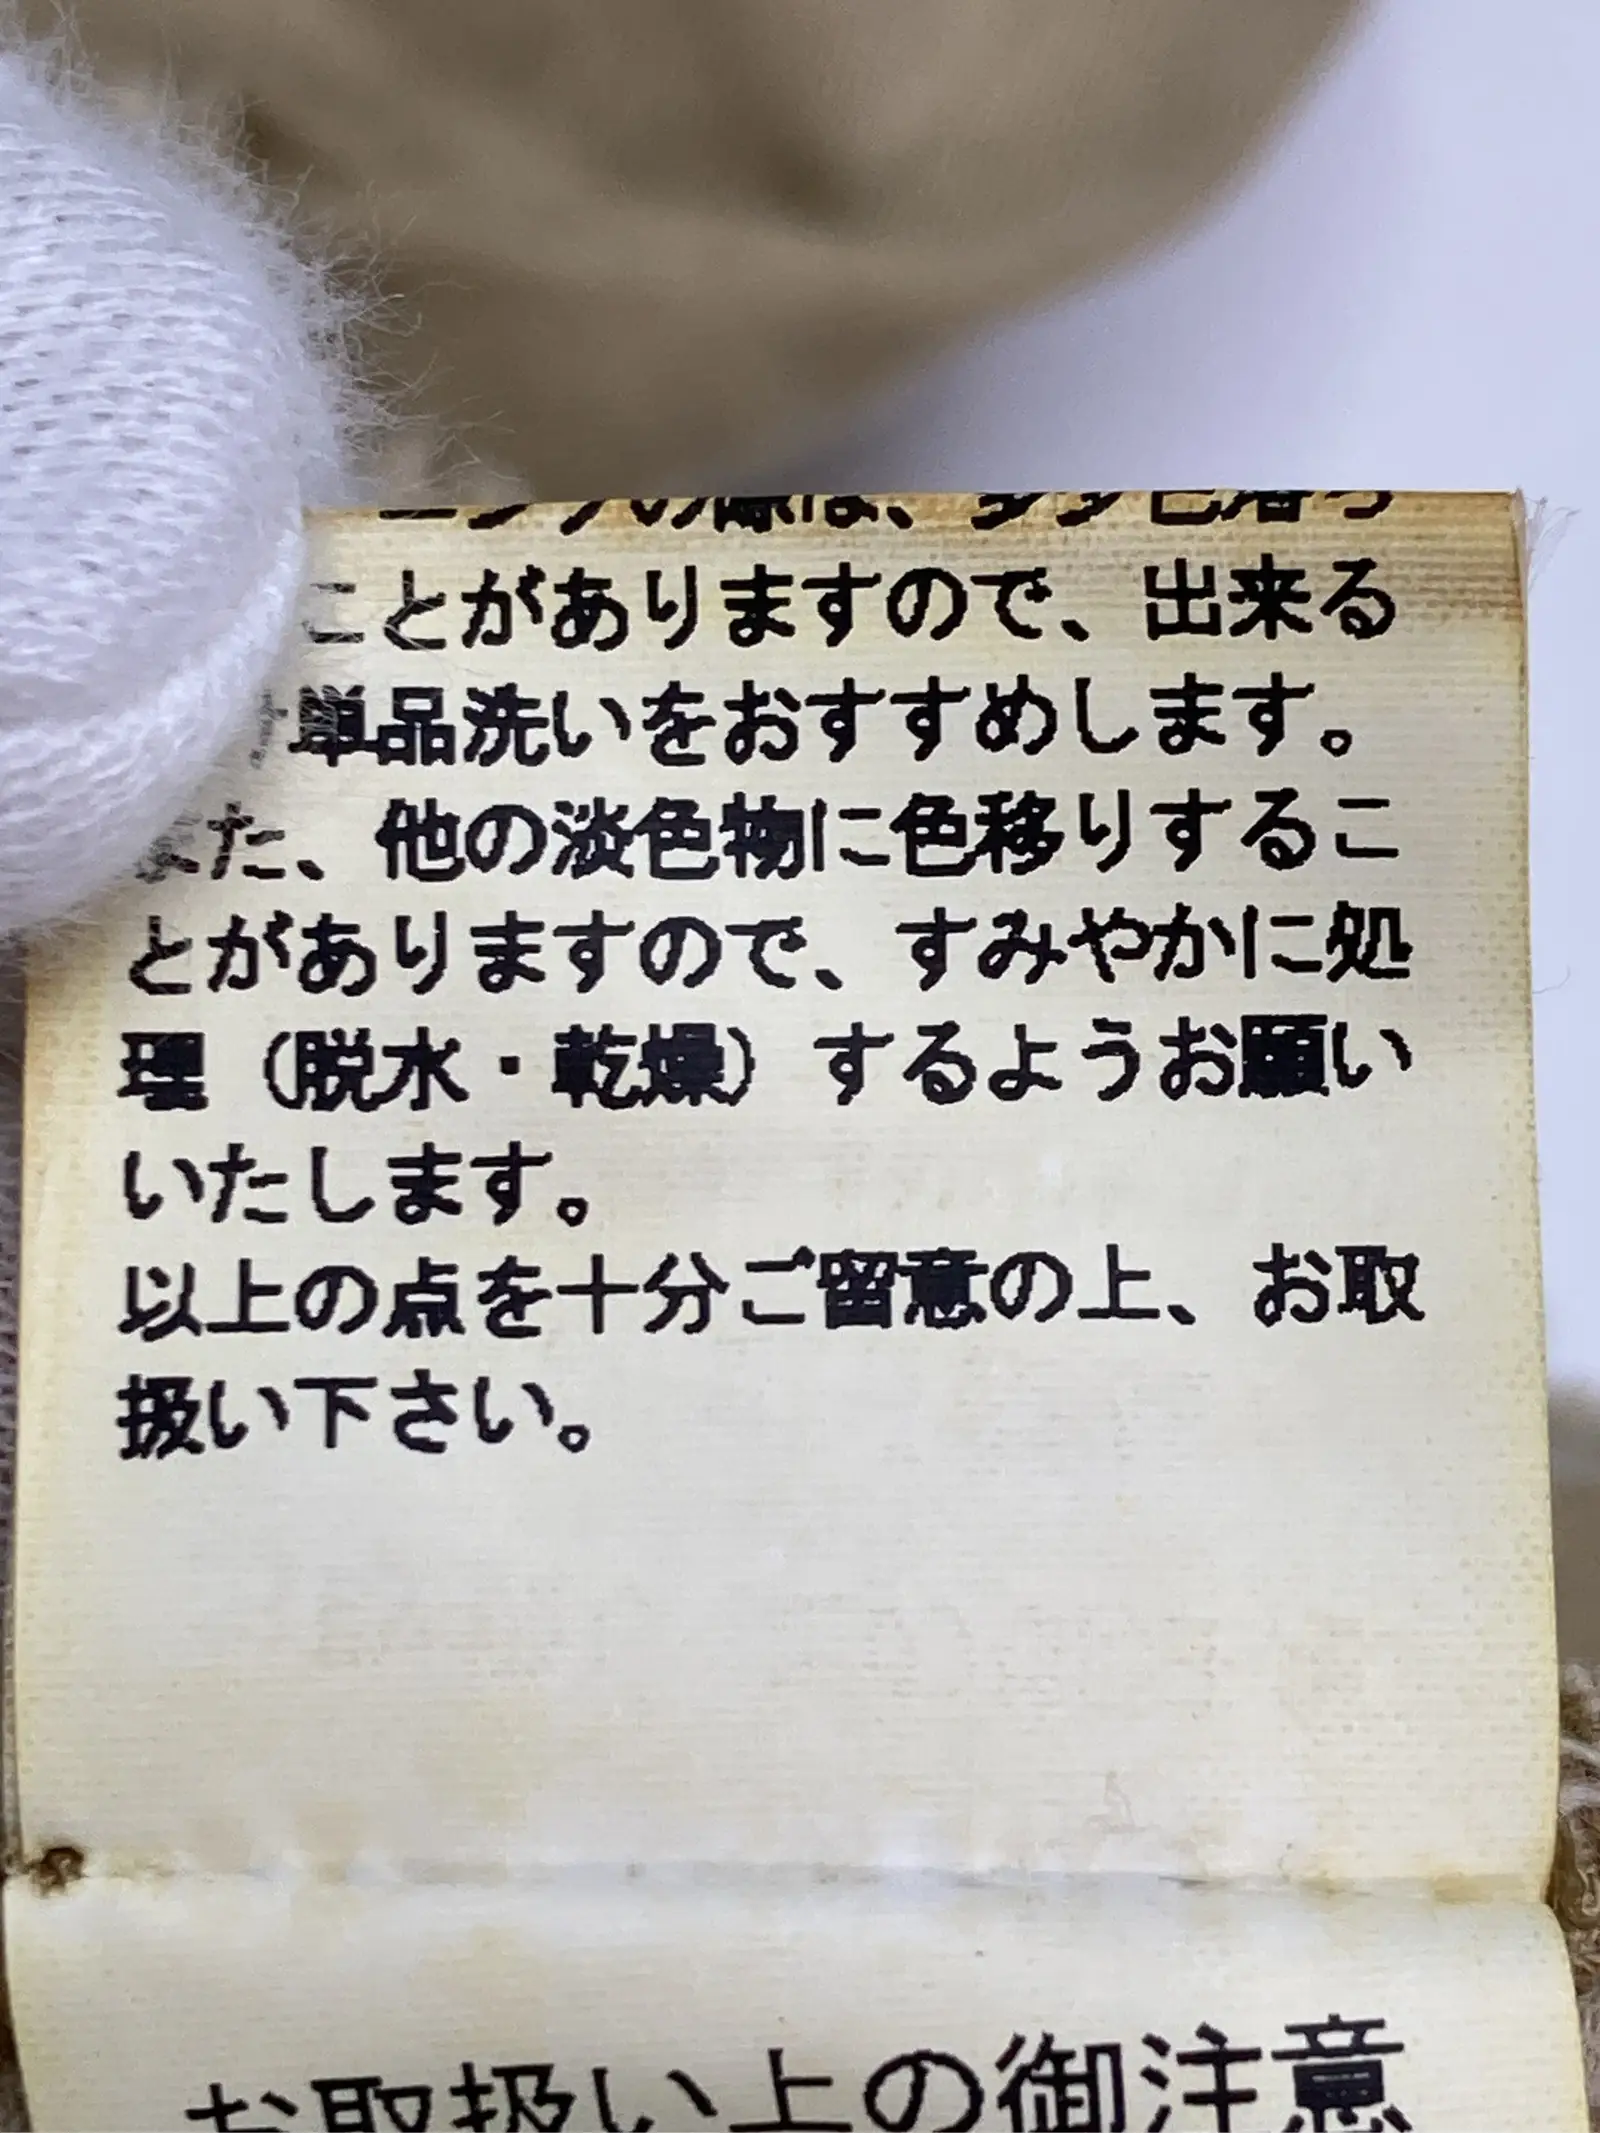 ングの際は、多少色落ち
ことがありますので、出来る
け単品洗いをおすすめします。
また、他の淡色物に色移りするこ
とがありますので、すみやかに処
理（脱水・乾燥）するようお願い
いたします。
以上の点を十分ご留意の上、お取
扱い下さい。
お取扱い上の御注意